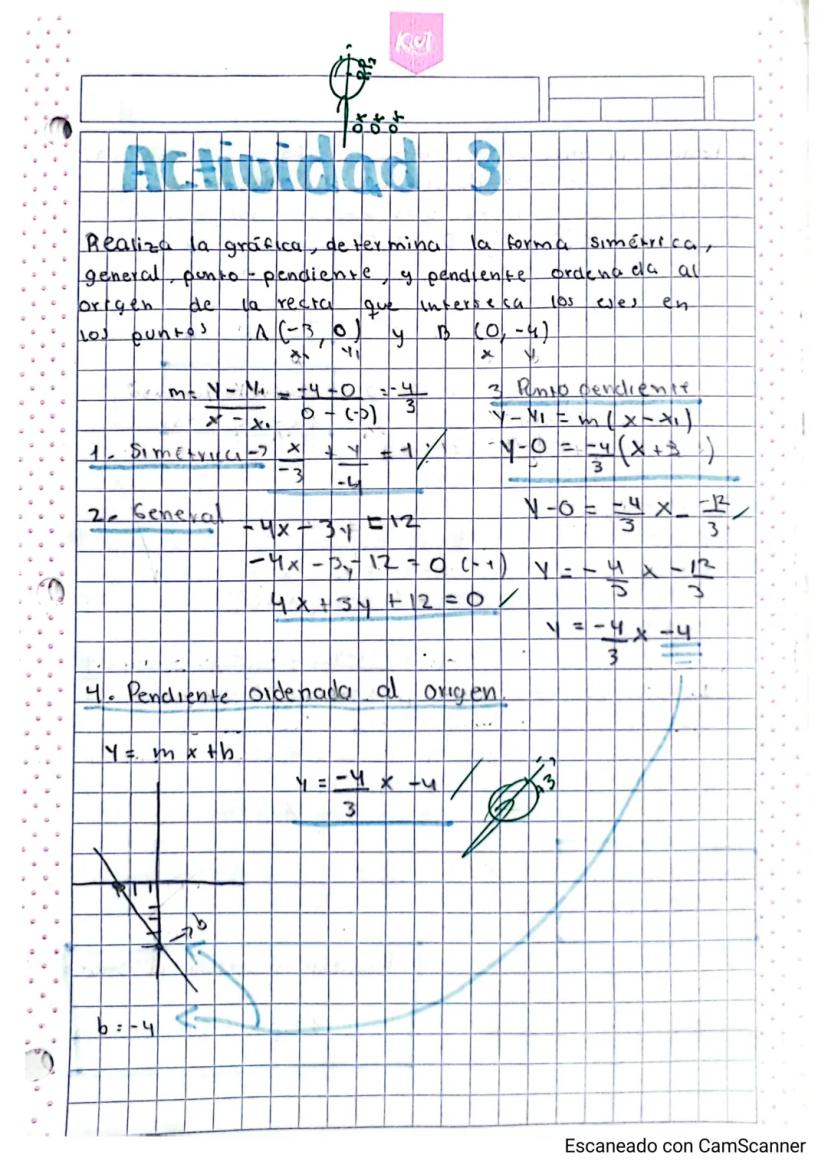 KCT
Actividad 3
Realiza la gráfica, determina la forma simétrica,
general, punto-pendiente, y pendiente ordenada al
origen de la recta que interseca los ejes en
los puntos A (-3, 0) y B (0, -4)
x₁ y₁ x y
m= y - y₁ / x - x₁ = -4-0 / 0-(-3) = -4/3
1.- Simétrica -> x/-3 + y/-4 = 1
2.- General
-4x - 3y = 12
-4x - 3y - 12 = 0 (-1)
4x + 3y + 12 = 0
3 Punto pendiente
y - y₁ = m (x - x₁)
y - 0 = -4/3 (x + 3)
y - 0 = -4/3 x - -12/3
y = -4/3 x - 12/3
y = -4/3 x - 4
4. Pendiente ordenada al origen
y = m x + b
y = -4/3 x - 4
b
b = -4
Escaneado con CamScanner